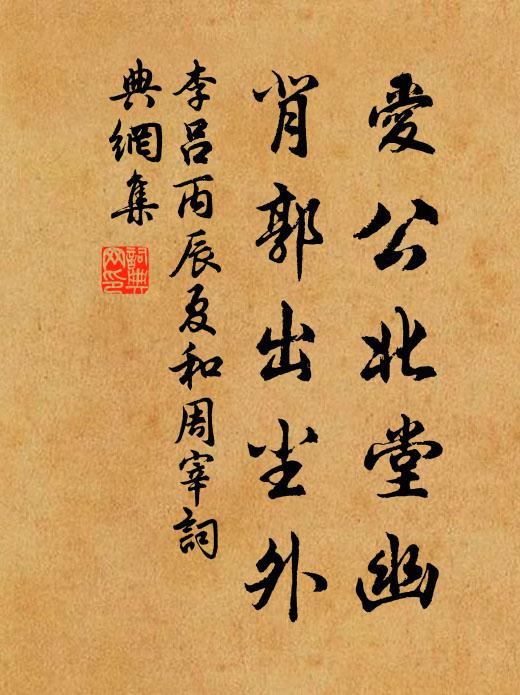 愛公北堂幽
背郭出尘外
李呂丙辰夏和周宰詞
典網集
詞典
网印